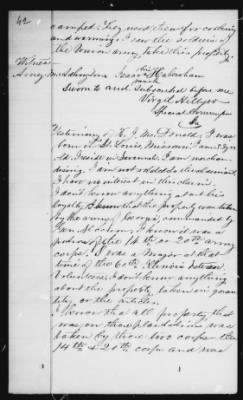 42
camped. They used it for cooking
and warming. I saw the soldiers of
the Union army take this property.
Witness
his
mark
Sworn to and Subscribed before me
Virgil Hillyer
Special Commr
Testimony of I was
born in St Louis Missouri. I am
old. I reside in Savannah. I am merchan
dising. I am not related to the claimant.
I have no interest in this claim.
I don't know anything as to his
loyalty. I know that the property was taken
by the army of Georgia, commanded by
Gen Slocum. I know it was a
of the 14th or 20th army
corps. I was a Major at that
time of the 60th Illinois
Volunteers. I don't know anything
about the property taken in quan
tity or the articles.
I know that all property that
was on these plantations was
taken by those two corps the
14th & 20th corps and was